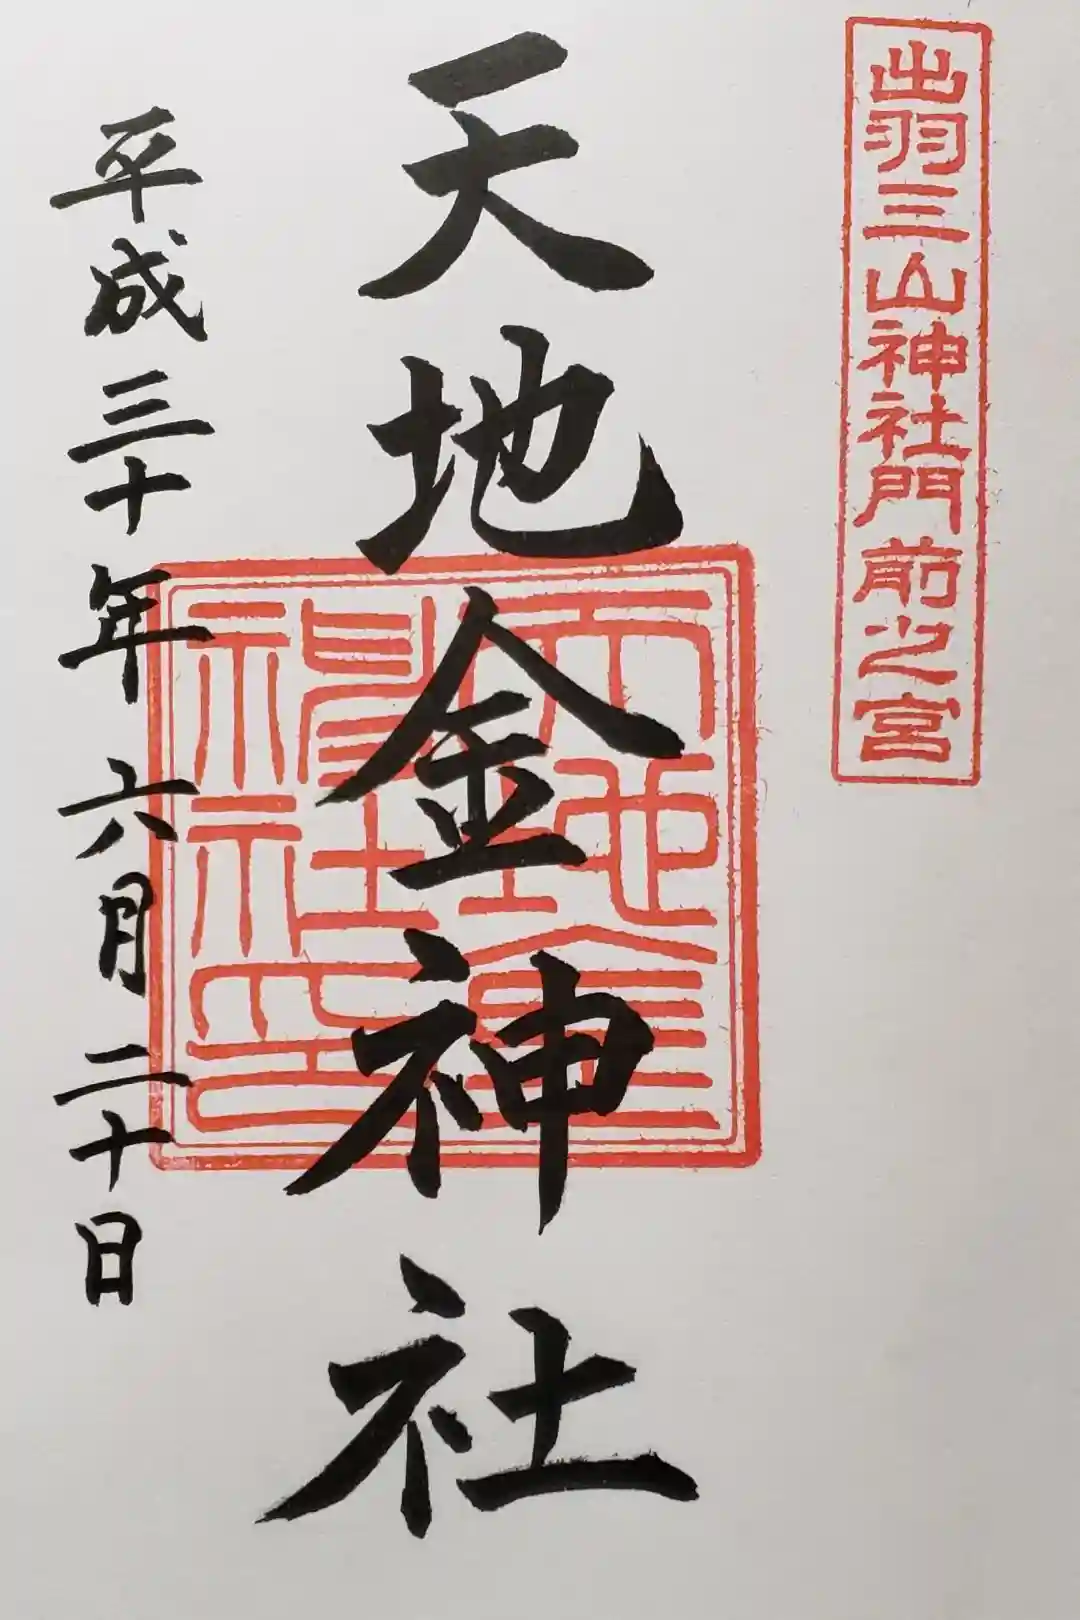 出羽三山神社門前之宮
天地金神社
天地金
神社印
平成三十年六月二十日